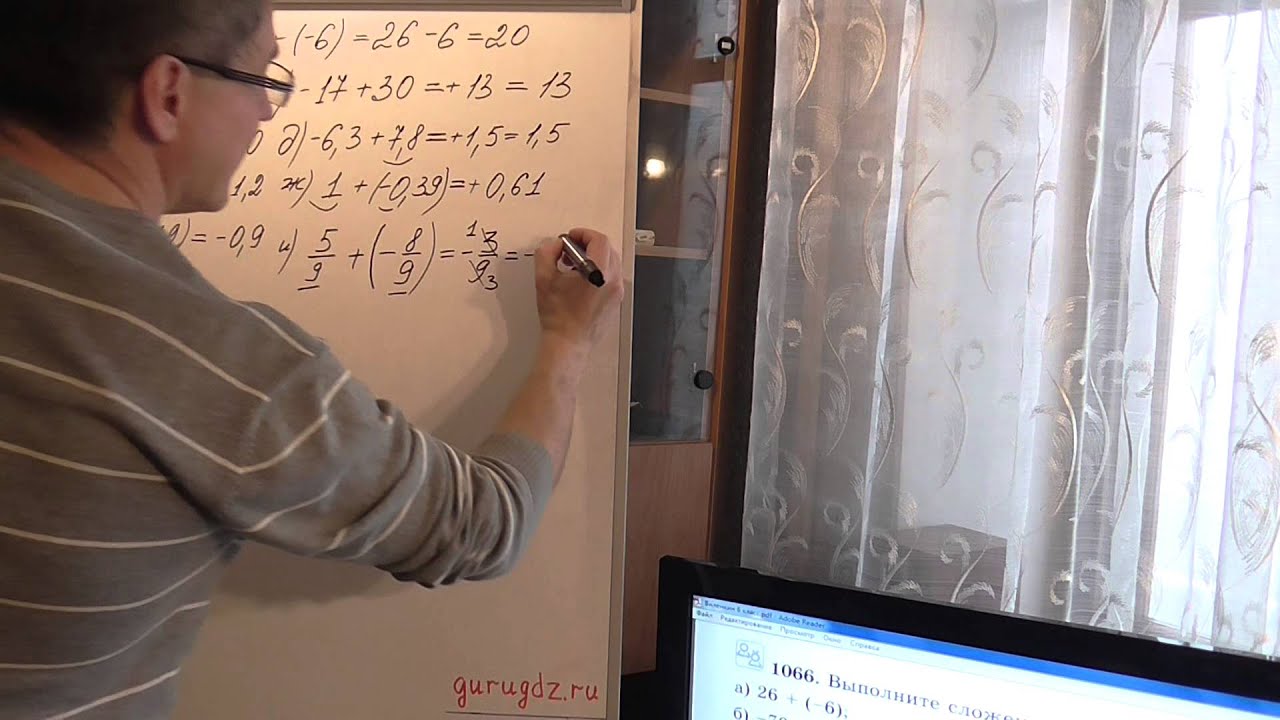 - (-6) = 26 - 6 = 20
- 17 + 30 = + 13 = 13
0 д) -6,3 + 7,8 = + 1,5 = 1,5
1,2 ж) 1 + (-0,39) = + 0,61
) = -0,9 и) 5/9 + (- 8/9) = - 1 3/9 3 = -
gurugdz.ru
Виленкин 6 клас .pdf - Adobe Reader
Файл Редактирование Просмотр Окно Справка
1066. Выполните сложен
а) 26 + (-6);
б) -70